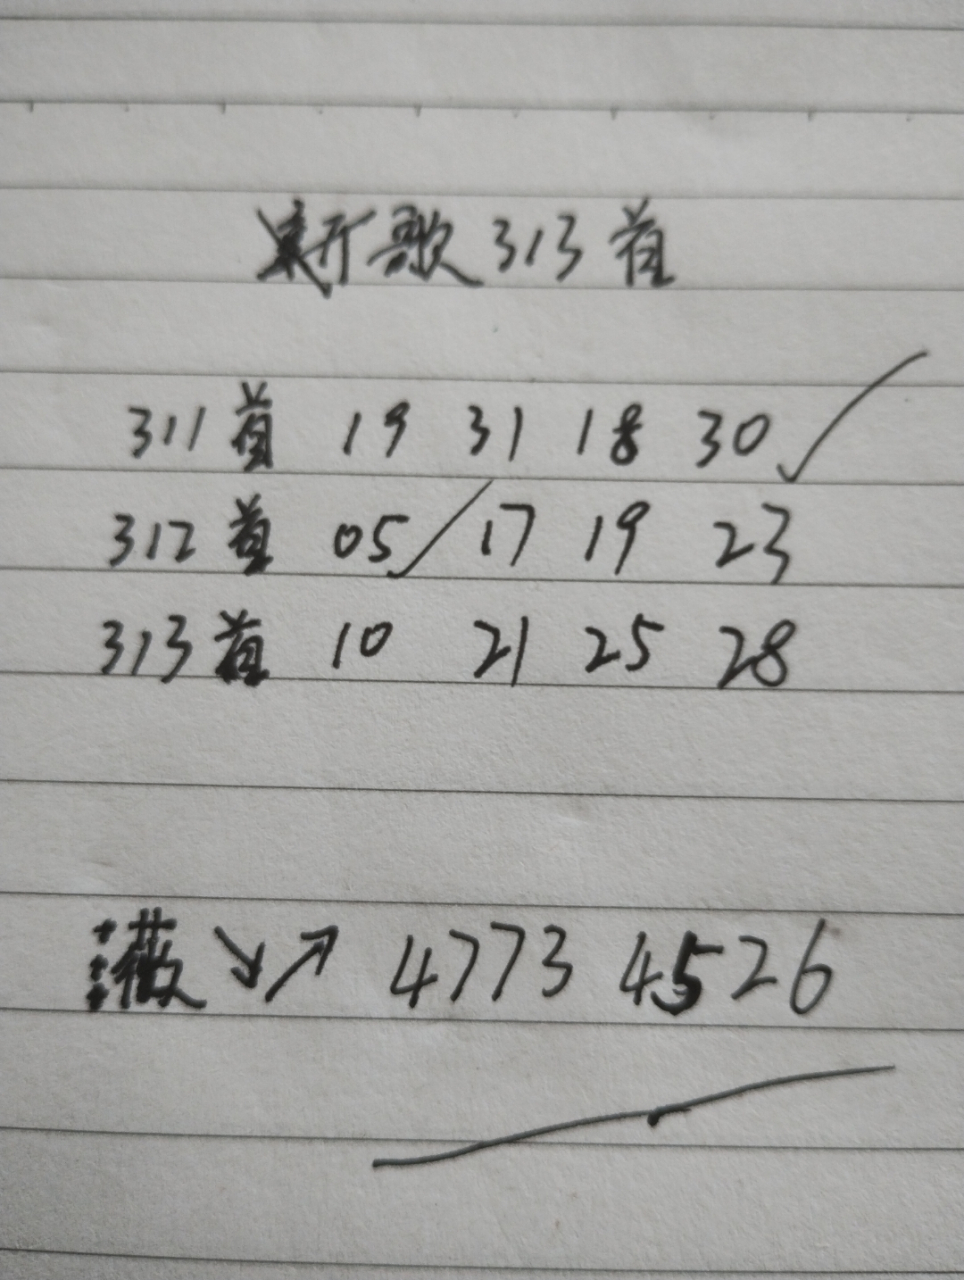 新歌 313 首
311 首 19 31 18 30
312 首 05 17 19 23
313 首 10 21 25 28
薇 ↘ ↗ 4773 4526